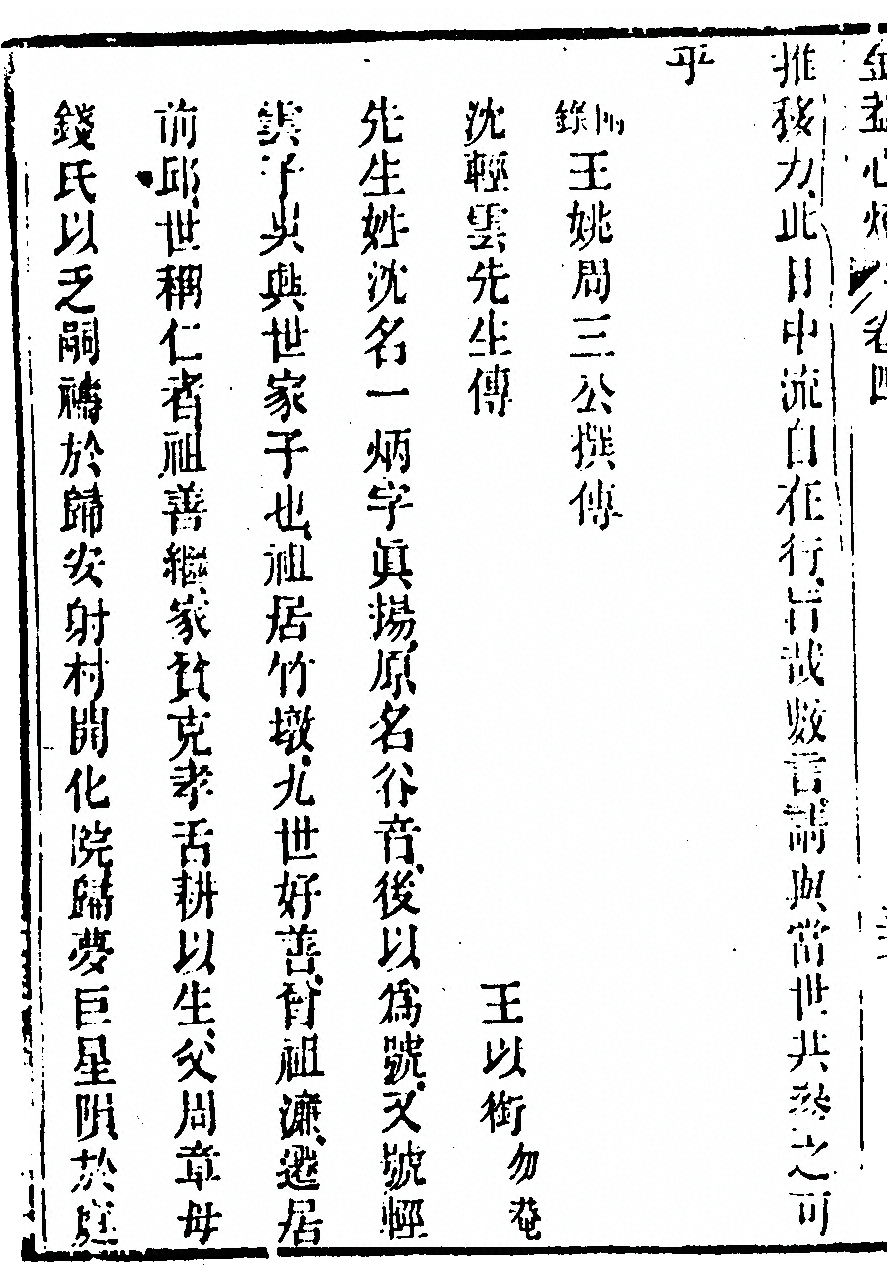 金蓋心燈 卷四
推移力、此日中流自在行、旨哉數言、請與當世共參之可
乎
附錄王姚周三公撰傳
沈輕雲先生傳 王以銜勿菴
先生姓沈名一炳字眞揚、原名谷音、後以爲號、又號輕
雲子吳興世家子也、祖居竹墩、九世好善、曾祖濂、遷居
前邱、世稱仁者祖善繼、家貧克孝舌耕以生、父周章母
錢氏以乏嗣禱於歸安射村開化院歸夢巨星隕於庭